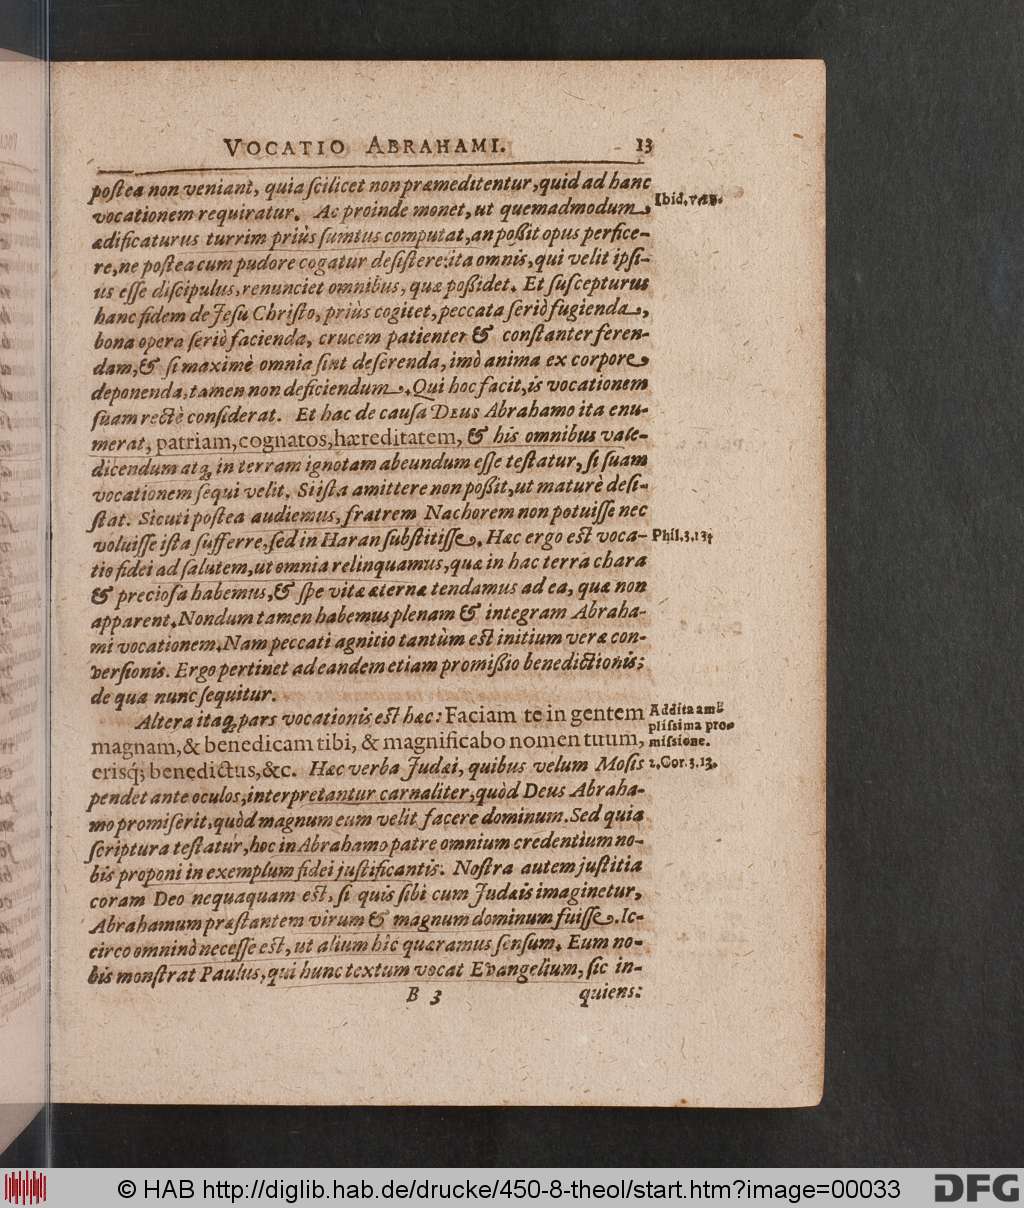 VOCATIO ABRAHAMI. 13
postea non veniant, quia scilicet non præmeditentur, quid ad hanc
vocationem requiratur. Ac proinde monet, ut quemadmodum,
ædificaturus turrim priùs sumtus computat, an poßit opus perfice-
re, ne postea cum pudore cogatur desistere: ita omnis, qui velit ipsi-
us esse discipulus, renunciet omnibus, quæ poßidet. Et suscepturus
hanc fidem de Jesu Christo, priùs cogitet, peccata seriò fugienda,
bona opera seriò facienda, crucem patienter & constanter feren-
dam, & si maximè omnia sint deserenda, imò anima ex corpore
deponenda, tamen non deficiendum. Qui hoc facit, is vocationem
suam rectè considerat. Et hac de causa DEUS Abrahamo ita enu-
merat, patriam, cognatos, hæreditatem, & his omnibus vale-
dicendum atq; in terram ignotam abeundum esse testatur, si suam
vocationem sequi velit. Si ista amittere non poßit, ut maturè desi-
stat. Sicuti postea audiemus, fratrem Nachorem non potuisse nec
voluisse ista sufferre, sed in Haran substitisse. Hæc ergo est voca-
tio fidei ad salutem, ut omnia relinquamus, quæ in hac terra chara
& preciosa habemus, & spe vitæ æternæ tendamus ad ea, quæ non
apparent. Nondum tamen habemus plenam & integram Abraha-
mi vocationem. Nam peccati agnitio tantùm est initium veræ con-
versionis. Ergo pertinet ad eandem etiam promißio benedictionis;
de qua nunc sequitur.
Altera itaq; pars vocationis est hæc: Faciam te in gentem
magnam, & benedicam tibi, & magnificabo nomen tuum,
erisq; benedictus, &c. Hæc verba Judæi, quibus velum Mosis
pendet ante oculos, interpretantur carnaliter, quòd Deus Abraha-
mo promiserit, quòd magnum eum velit facere dominum. Sed quia
scriptura testatur, hoc in Abrahamo patre omnium credentium no-
bis proponi in exemplum fidei justificantis. Nostra autem justitia
coram Deo nequaquam est, si quis sibi cum Judæis imaginetur,
Abrahamum præstantem virum & magnum dominum fuisse. Ic-
circo omninò necesse est, ut alium hîc quæramus sensum. Eum no-
bis monstrat Paulus, qui hunc textum vocat Evangelium, sic in-
B 3 quiens:
Ibid.
Phil. 3. 13.
Addita am-
plissima pro-
missione.
2. Cor. 3. 13.
© HAB http://diglib.hab.de/drucke/450-8-theol/start.htm?image=00033
DFG